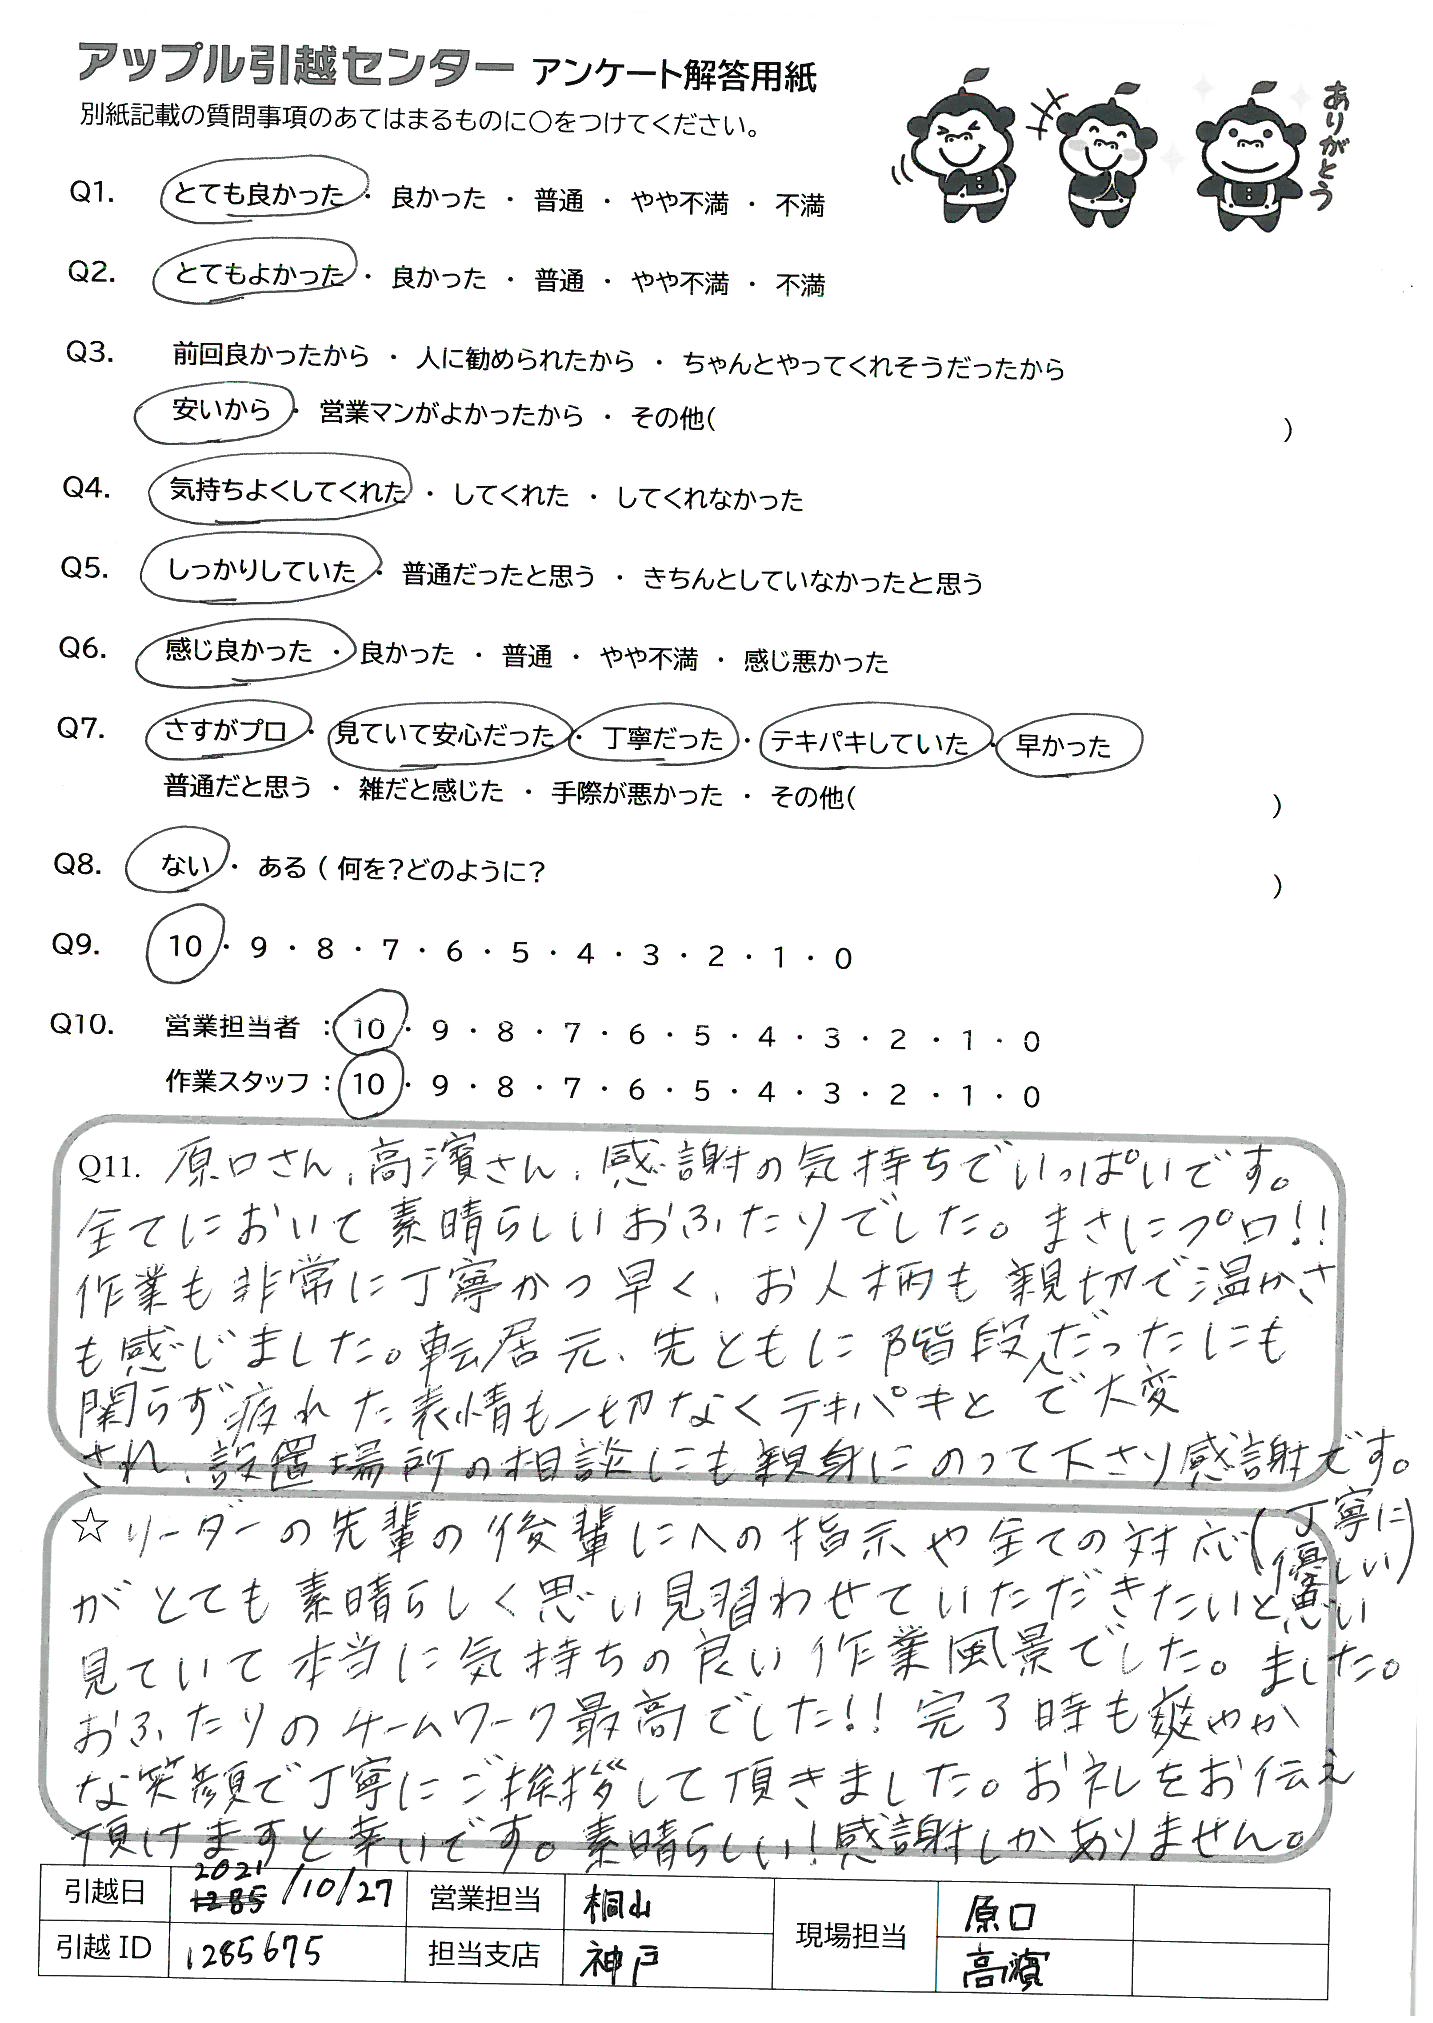 アップル引越センター アンケート解答用紙
別紙記載の質問事項のあてはまるものに○をつけてください。
ありがとう
Q1. とても良かった ・ 良かった ・ 普通 ・ やや不満 ・ 不満
Q2. とてもよかった ・ 良かった ・ 普通 ・ やや不満 ・ 不満
Q3. 前回良かったから ・ 人に勧められたから ・ ちゃんとやってくれそうだったから
安いから ・ 営業マンがよかったから ・ その他( )
Q4. 気持ちよくしてくれた ・ してくれた ・ してくれなかった
Q5. しっかりしていた ・ 普通だったと思う ・ きちんとしていなかったと思う
Q6. 感じ良かった ・ 良かった ・ 普通 ・ やや不満 ・ 感じ悪かった
Q7. さすがプロ ・ 見ていて安心だった ・ 丁寧だった ・ テキパキしていた ・ 早かった
普通だと思う ・ 雑だと感じた ・ 手際が悪かった ・ その他( )
Q8. ない ・ ある ( 何を？どのように？ )
Q9. 10 ・ 9 ・ 8 ・ 7 ・ 6 ・ 5 ・ 4 ・ 3 ・ 2 ・ 1 ・ 0
Q10. 営業担当者 ： 10 ・ 9 ・ 8 ・ 7 ・ 6 ・ 5 ・ 4 ・ 3 ・ 2 ・ 1 ・ 0
作業スタッフ ： 10 ・ 9 ・ 8 ・ 7 ・ 6 ・ 5 ・ 4 ・ 3 ・ 2 ・ 1 ・ 0
Q11. 原口さん、高濱さん、感謝の気持ちでいっぱいです。
全てにおいて素晴らしいおふたりでした。まさにプロ!!
作業も非常に丁寧かつ早く、お人柄も親切で温かさ
も感じました。転居元、先ともに階段だったにも
関らず疲れた表情も一切なくテキパキと で大変
され、設置場所の相談にも親身にのって下さり感謝です。
☆リーダーの先輩の後輩にへの指示や全ての対応(丁寧に
優しい)
がとても素晴らしく思い見習わせていただきたいと思い
見ていて本当に気持ちの良い作業風景でした。ました。
おふたりのチームワーク最高でした!! 完了時も爽やか
な笑顔で丁寧にご挨拶して頂きました。お礼をお伝え
頂けますと幸いです。素晴らしい!感謝しかありません。
引越日 2021 1285 /10/27 営業担当 桐山 現場担当 原口
引越 ID 1285675 担当支店 神戸 高濱